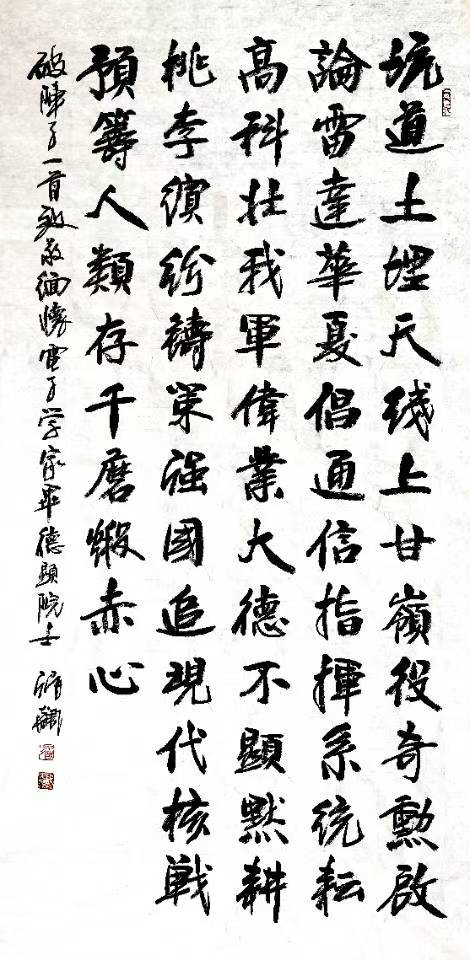 坑道土埋天线上甘嶺役奇勳啟
論雷達華夏倡通信指揮系统耘
高科壮我軍偉業大德不顯黙耕
桃李缤纷策强國追現代核戰
預籌人類存千磨煅赤心
破陣子一首致敬缅懷電子学家畢德顯院士